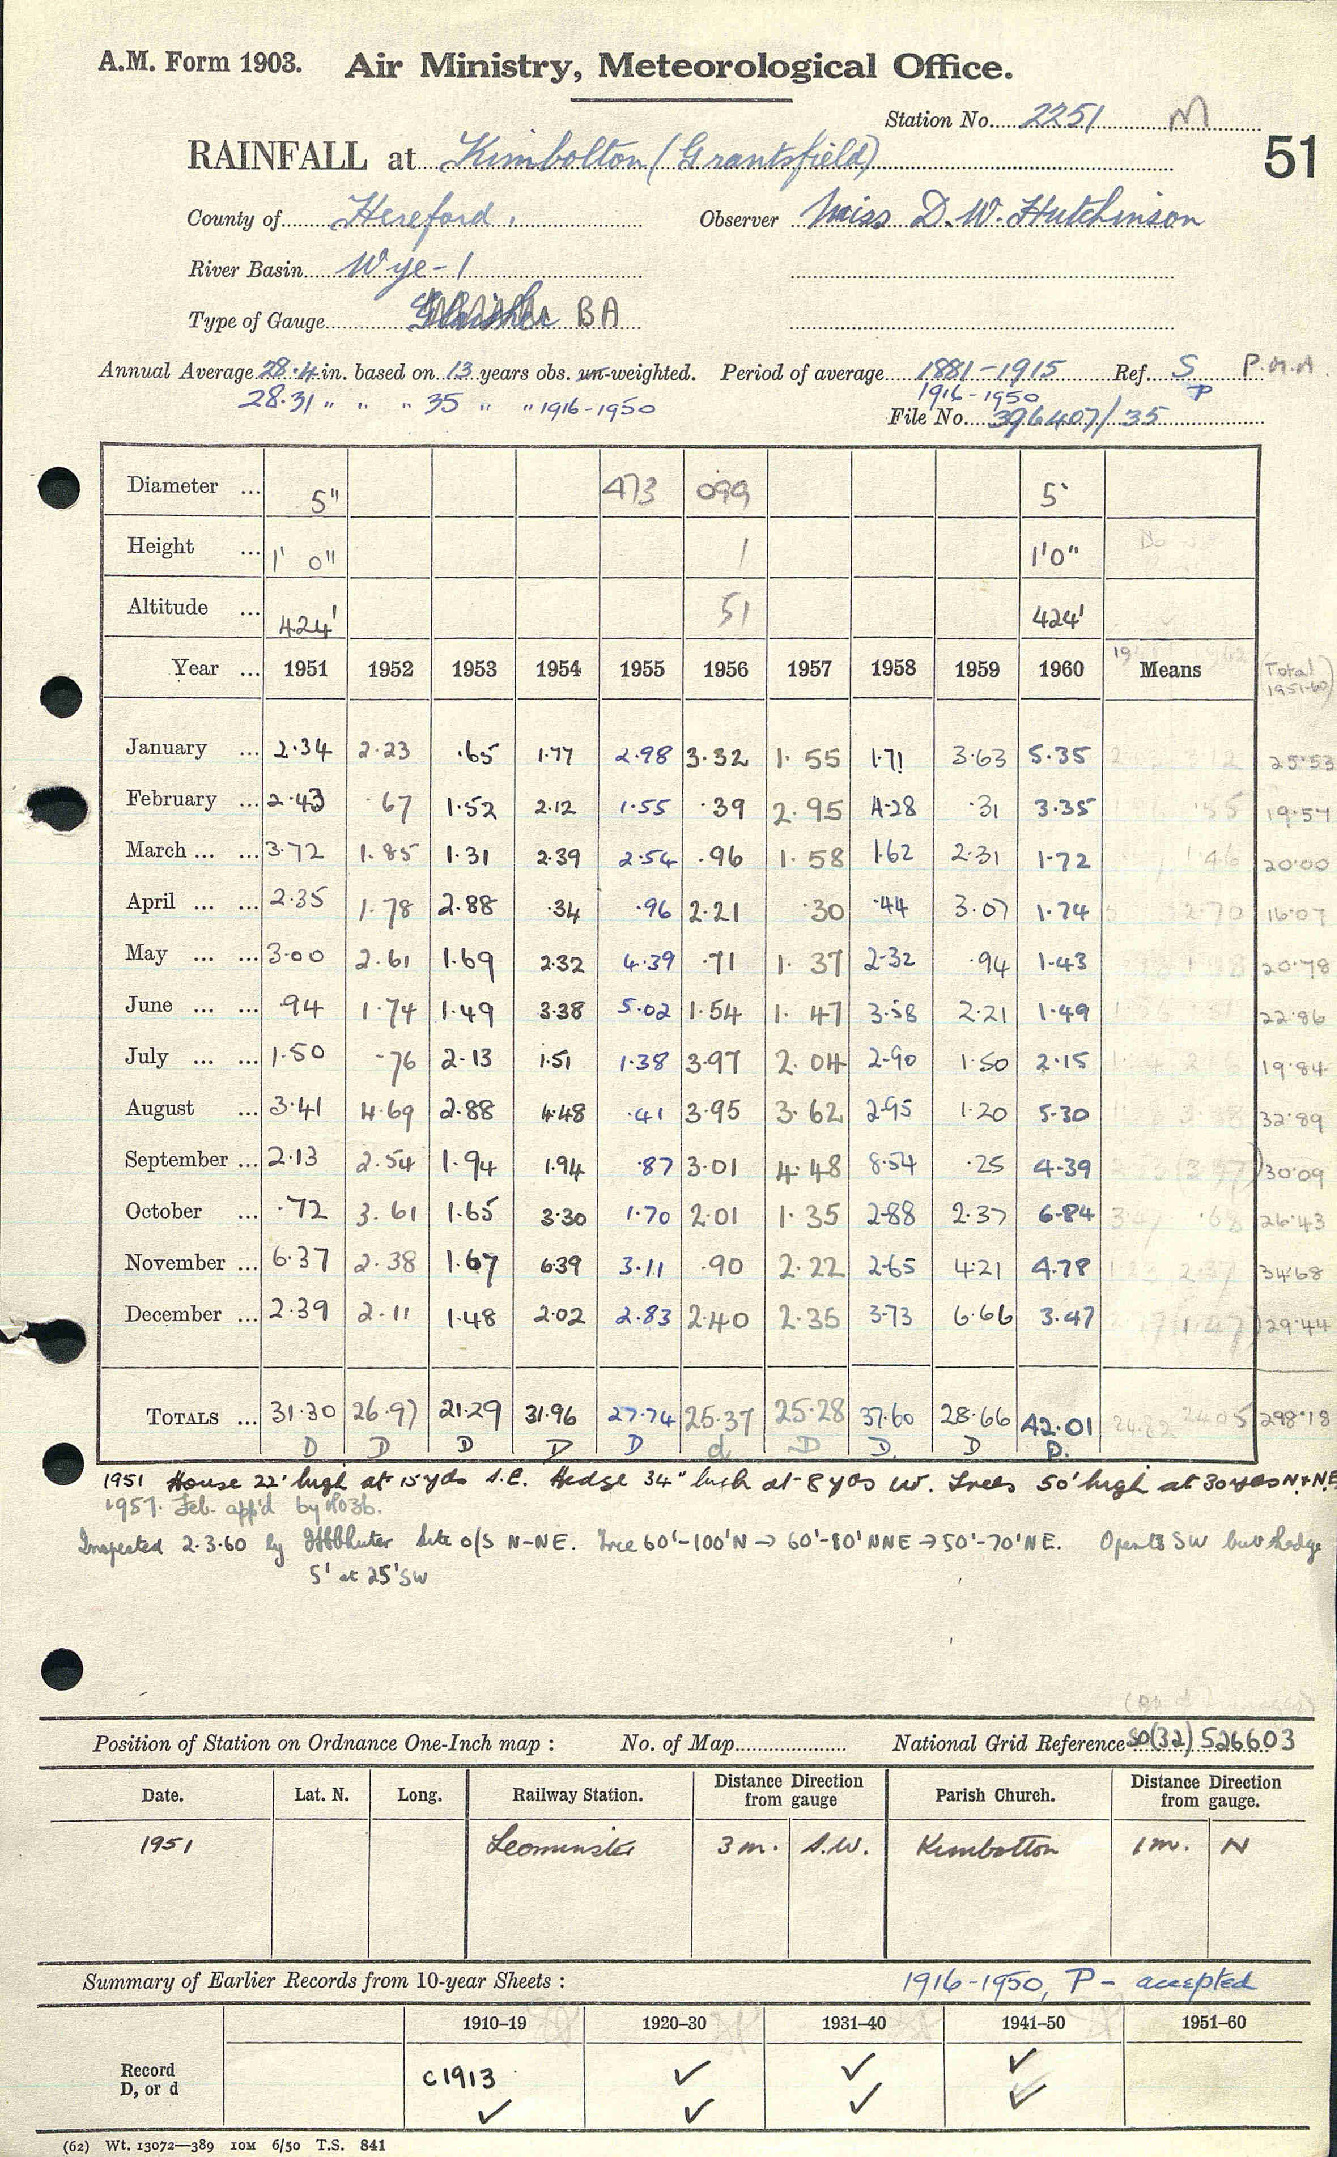 A.M. Form 1903. Air Ministry, Meteorological Office.
Station No. 2251 M
51
RAINFALL at Kimbolton (Grantsfield)
County of Hereford. Observer Miss D.W. Hutchinson
River Basin Wye-1
Type of Gauge BA
Annual Average 28.4 in. based on 13 years obs. un-weighted. Period of average 1881-1915 Ref. S P.M.A.
28.31 " " " 35 " " 1916-1950 1916-1950 P
File No. 396407/35
Diameter ... 5" 473 099 5"
Height ... 1' 0" 1 1'0"
Altitude ... 424' 51 424'
Year ... 1951 1952 1953 1954 1955 1956 1957 1958 1959 1960 Means Total 1951-60
January ... 2.34 2.23 .65 1.77 2.98 3.32 1.55 1.71 3.63 5.35 25.53
February ... 2.43 .67 1.52 2.12 1.55 .39 2.95 4.28 .31 3.35 19.57
March ... ... 3.72 1.85 1.31 2.39 2.54 .96 1.58 1.62 2.31 1.72 20.00
April ... ... 2.35 1.78 2.88 .34 .96 2.21 .30 .44 3.07 1.74 16.07
May ... ... 3.00 2.61 1.69 2.32 4.39 .71 1.37 2.32 .94 1.43 20.78
June ... ... .94 1.74 1.49 3.38 5.02 1.54 1.47 3.58 2.21 1.49 22.86
July ... ... 1.50 .76 2.13 1.51 1.38 3.97 2.04 2.90 1.50 2.15 19.84
August ... 3.41 4.69 2.88 4.48 .41 3.95 3.62 2.95 1.20 5.30 32.89
September ... 2.13 2.54 1.94 1.94 .87 3.01 4.48 8.54 .25 4.39 30.09
October ... .72 3.61 1.65 3.30 1.70 2.01 1.35 2.88 2.37 6.84 26.43
November ... 6.37 2.38 1.67 6.39 3.11 .90 2.22 2.65 4.21 4.78 34.68
December ... 2.39 2.11 1.48 2.02 2.83 2.40 2.35 3.73 6.66 3.47 29.44
TOTALS ... 31.30 26.97 21.29 31.96 27.74 25.37 25.28 37.60 28.66 42.01 24.82 24.05 298.18
D D D D D d D D D D.
1951 House 22' high at 15 yds S.E. Hedge 34" high at 8 yds W. Trees 50' high at 30 yds N & NE
1957. Feb. app'd by M03b.
Inspected 2.3.60 by Site o/s N-NE. Tree 60'-100'N → 60'-80' NNE → 50'-70' NE. Open to SW but hedge
5' at 25' SW
Position of Station on Ordnance One-Inch map : No. of Map National Grid Reference SO(32) 526603
Date. Lat. N. Long. Railway Station. Distance Direction from gauge Parish Church. Distance Direction from gauge.
1951 Leominster 3 m. S.W. Kimbolton 1 m. N
Summary of Earlier Records from 10-year Sheets : 1916-1950, P - accepted
1910-19 1920-30 1931-40 1941-50 1951-60
Record D, or d c1913 ✓ ✓ ✓
✓ ✓ ✓ ✓
(62) Wt. 13072—389 10M 6/50 T.S. 841